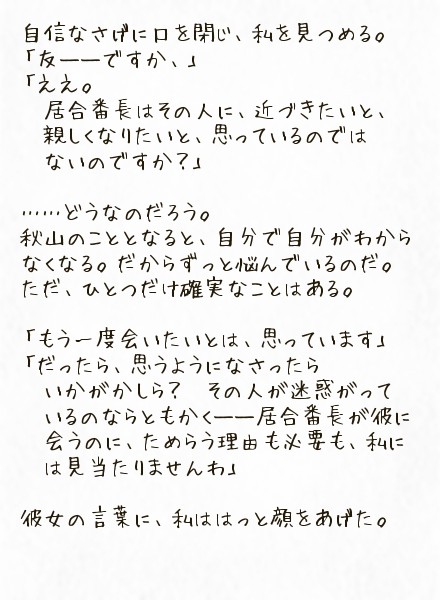 自信なさげに口を閉じ、私を見つめる。
「友――ですか、」
「ええ。
居合番長はその人に、近づきたいと、
親しくなりたいと、思っているのでは
ないのですか？」
……どうなのだろう。
秋山のこととなると、自分で自分がわから
なくなる。だからずっと悩んでいるのだ。
ただ、ひとつだけ確実なことはある。
「もう一度会いたいとは、思っています」
「だったら、思うようになさったら
いかがかしら？　その人が迷惑がって
いるのならともかく――居合番長が彼に
会うのに、ためらう理由も必要も、私に
は見当たりませんわ」
彼女の言葉に、私ははっと顔をあげた。